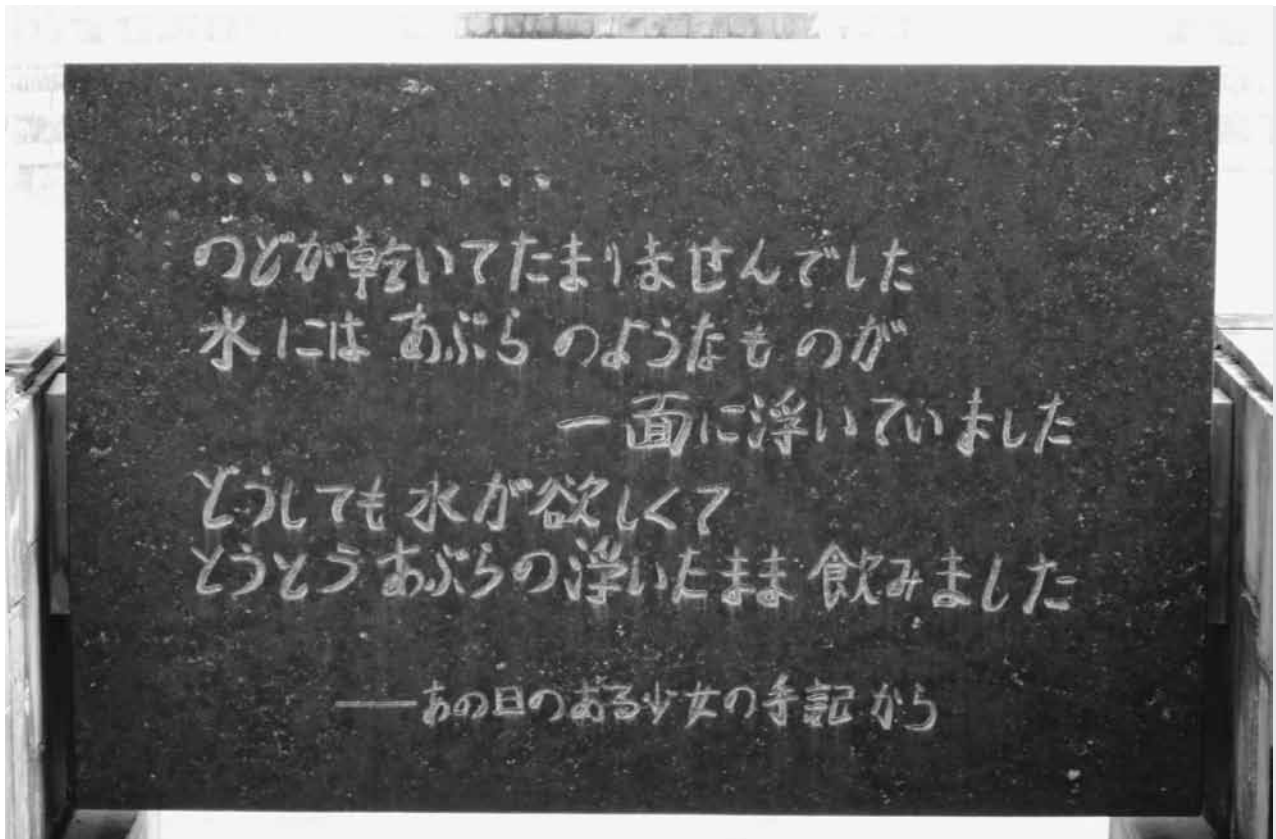 ・・・・・・・・・・・
のどが乾いてたまりませんでした
水には あぶら のようなものが
一面に浮いていました
どうしても 水が欲しくて
とうとう あぶらの浮いたまま 飲みました
――あの日のある少女の手記から